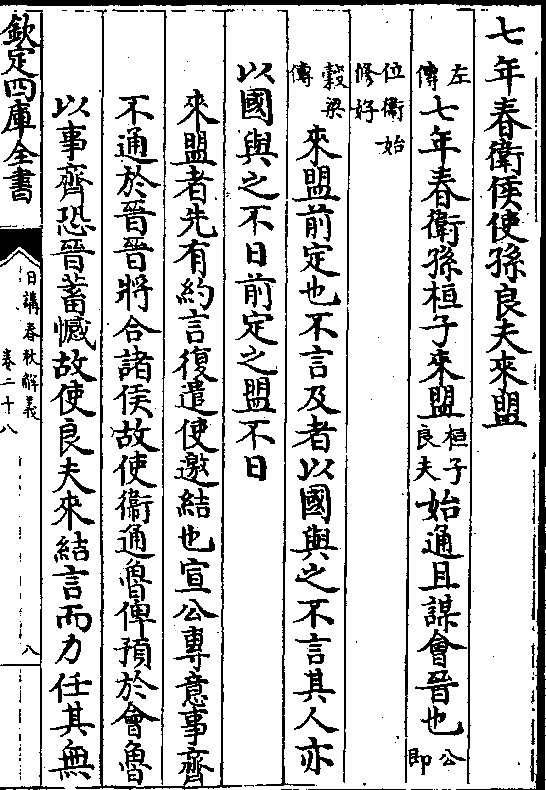 七年春衛侯使孫良夫來盟
左傳七年春衛孫桓子來盟桓子良夫始通且謀會晉也公即
位衛始修好
穀梁傳來盟前定也不言及者以國與之不言其人亦
以國與之不日前定之盟不日
來盟者先有約言復遣使邀結也宣公專意事齊
不通於晉晉將合諸侯故使衛通魯俾預於會魯
以事齊恐晉蓄憾故使良夫來結言而力任其無
欽定四庫全書
日講春秋解義
卷二十八
八